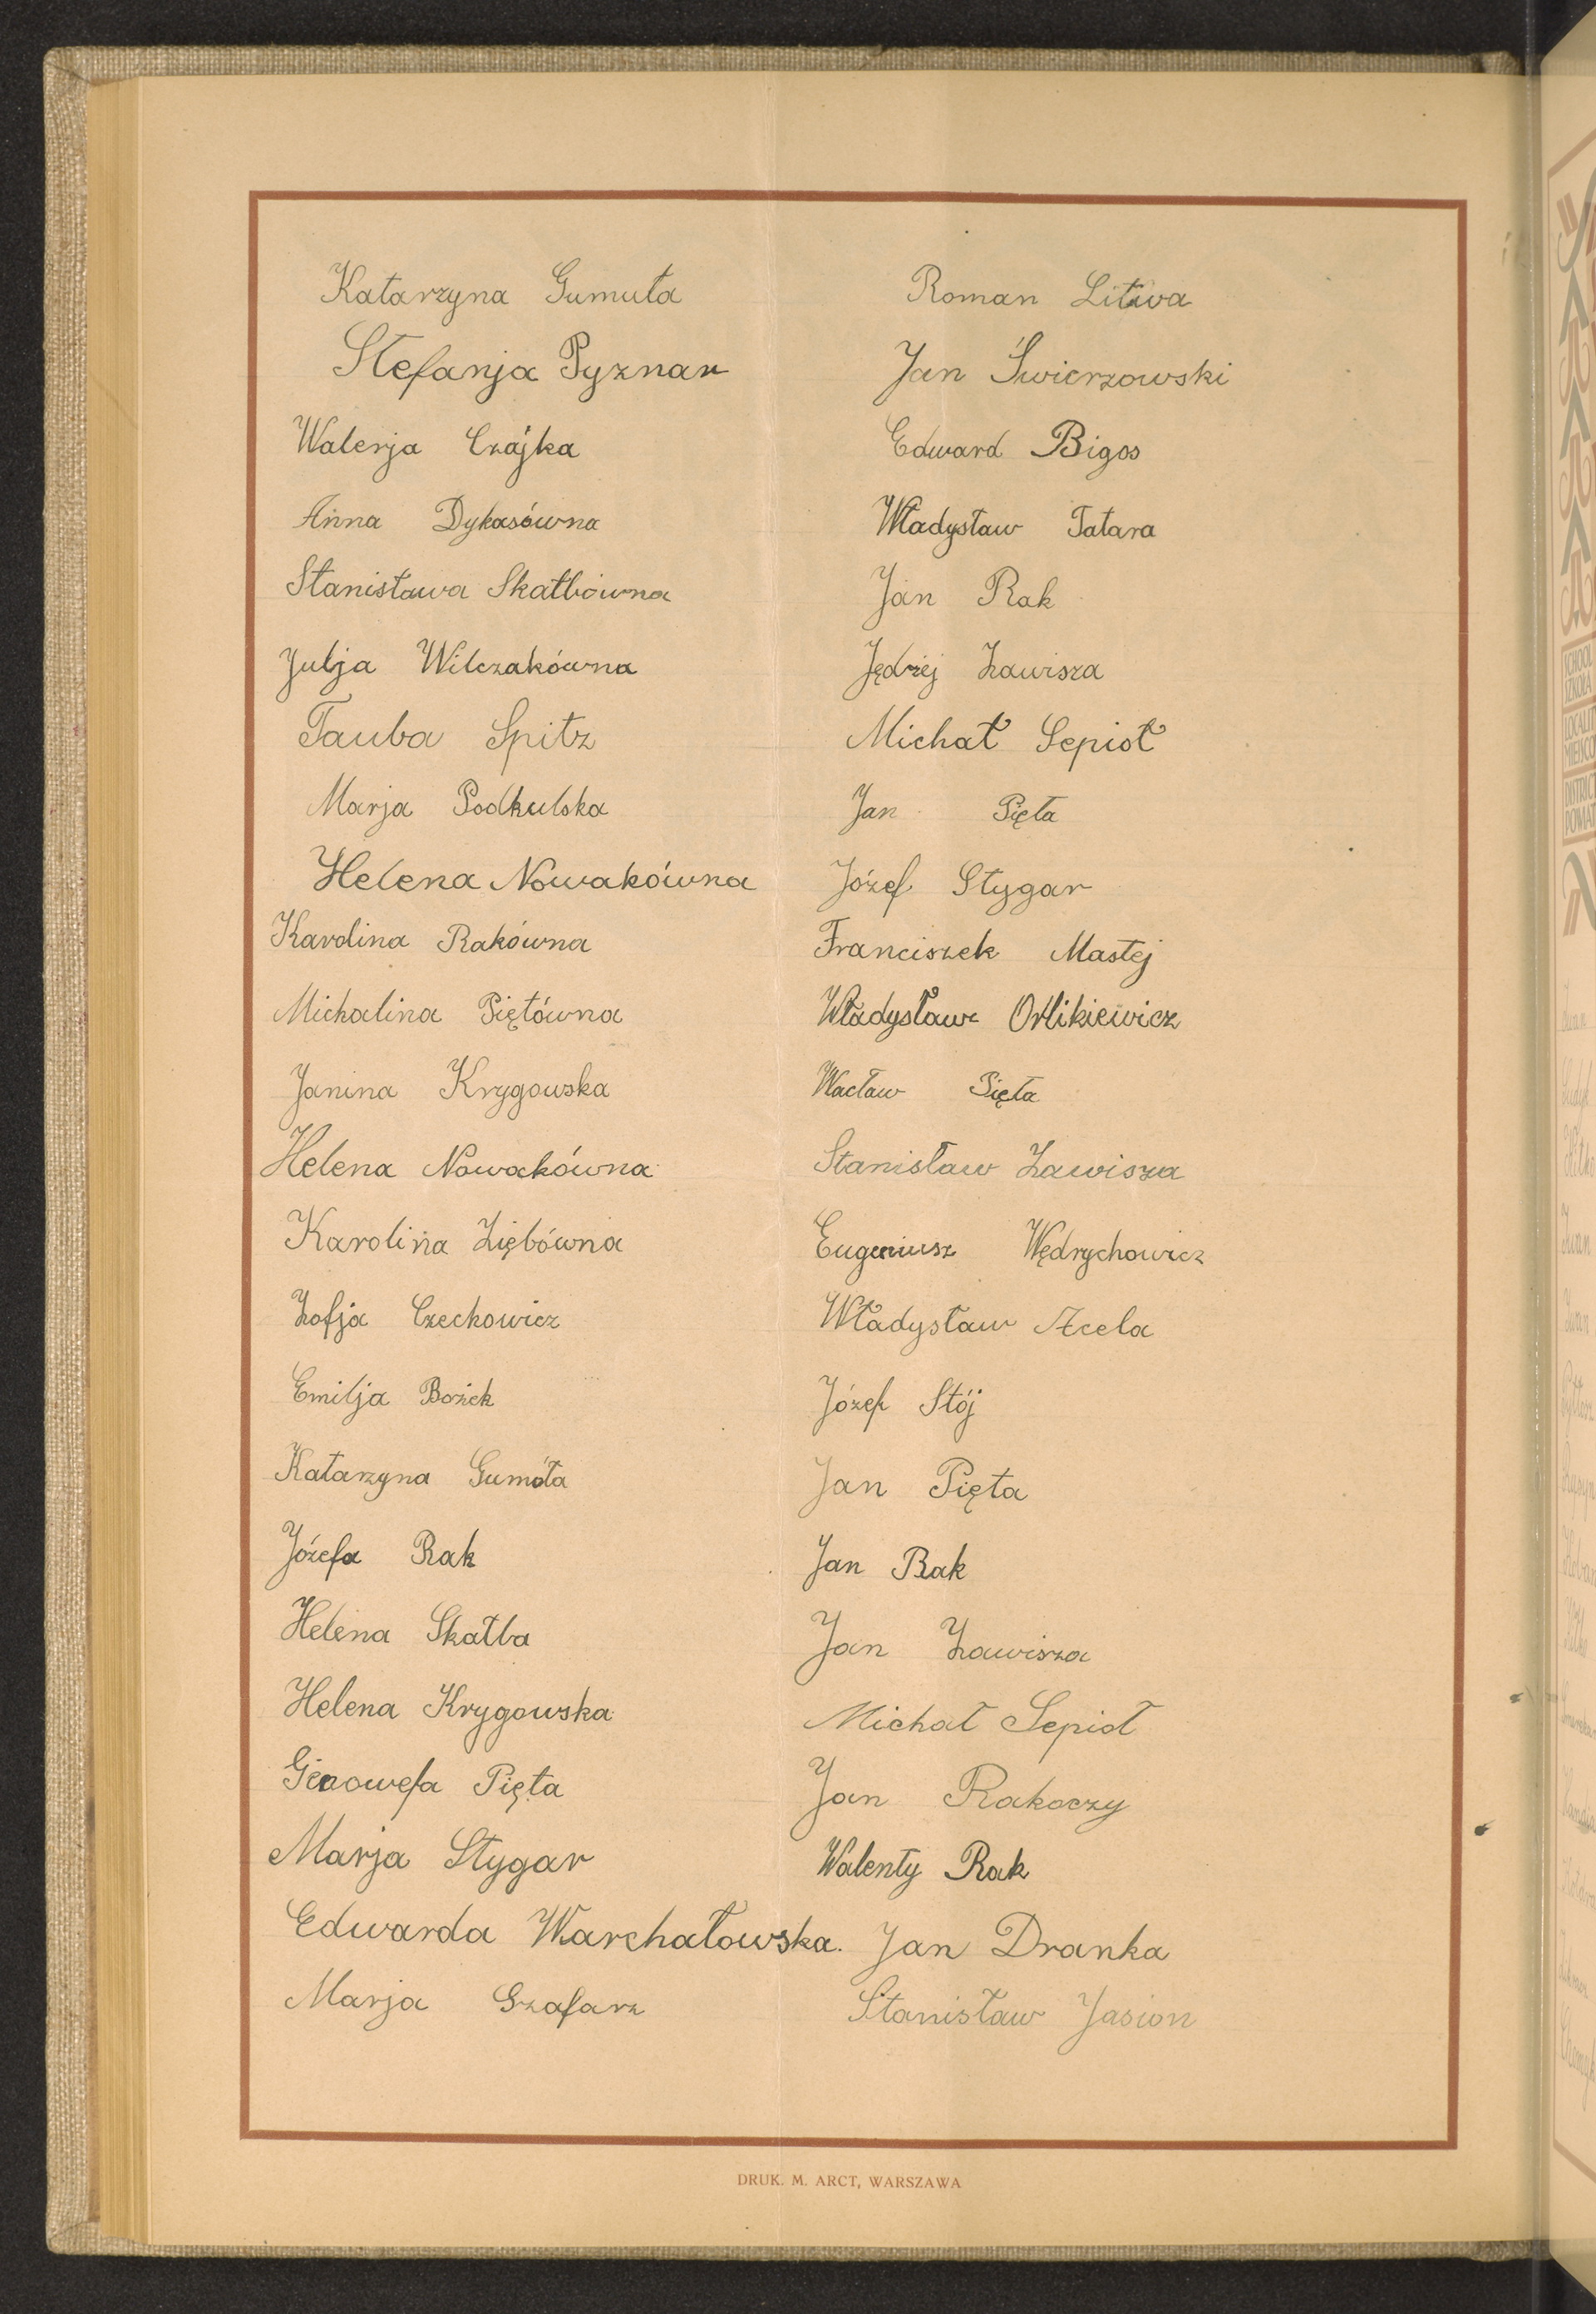 Katarzyna Gumuła
Stefanja Pyznar
Walerja Czajka
Anna Dykasówna
Stanisława Skałbówna
Julja Wilczakówna
Tauba Spitz
Marja Podkulska
Helena Nowakówna
Karolina Rakówna
Michalina Piętówna
Janina Krygowska
Helena Nowakówna
Karolina Ziębówna
Zofja Czechowicz
Emilja Bożek
Katarzyna Gumóła
Józefa Rak
Helena Skałba
Helena Krygowska
Genowefa Pięta
Marja Stygar
Edwarda Warchałowska.
Marja Szafarz
Roman Litwa
Jan Świerzowski
Edward Bigos
Władysław Tatara
Jan Rak
Jędrzej Zawisza
Michał Sepioł
Jan Pięta
Józef Stygar
Franciszek Mastej
Władysław Orlikiewicz
Wacław Pięta
Stanisław Zawisza
Eugeniusz Wędrychowicz
Władysław
Józef Stój
Jan Pięta
Jan Rak
Jan Zawisza
Michał Sepioł
Jan Rakoczy
Walenty Rak
Jan Dranka
Stanisław Jasion
DRUK. M. ARCT, WARSZAWA